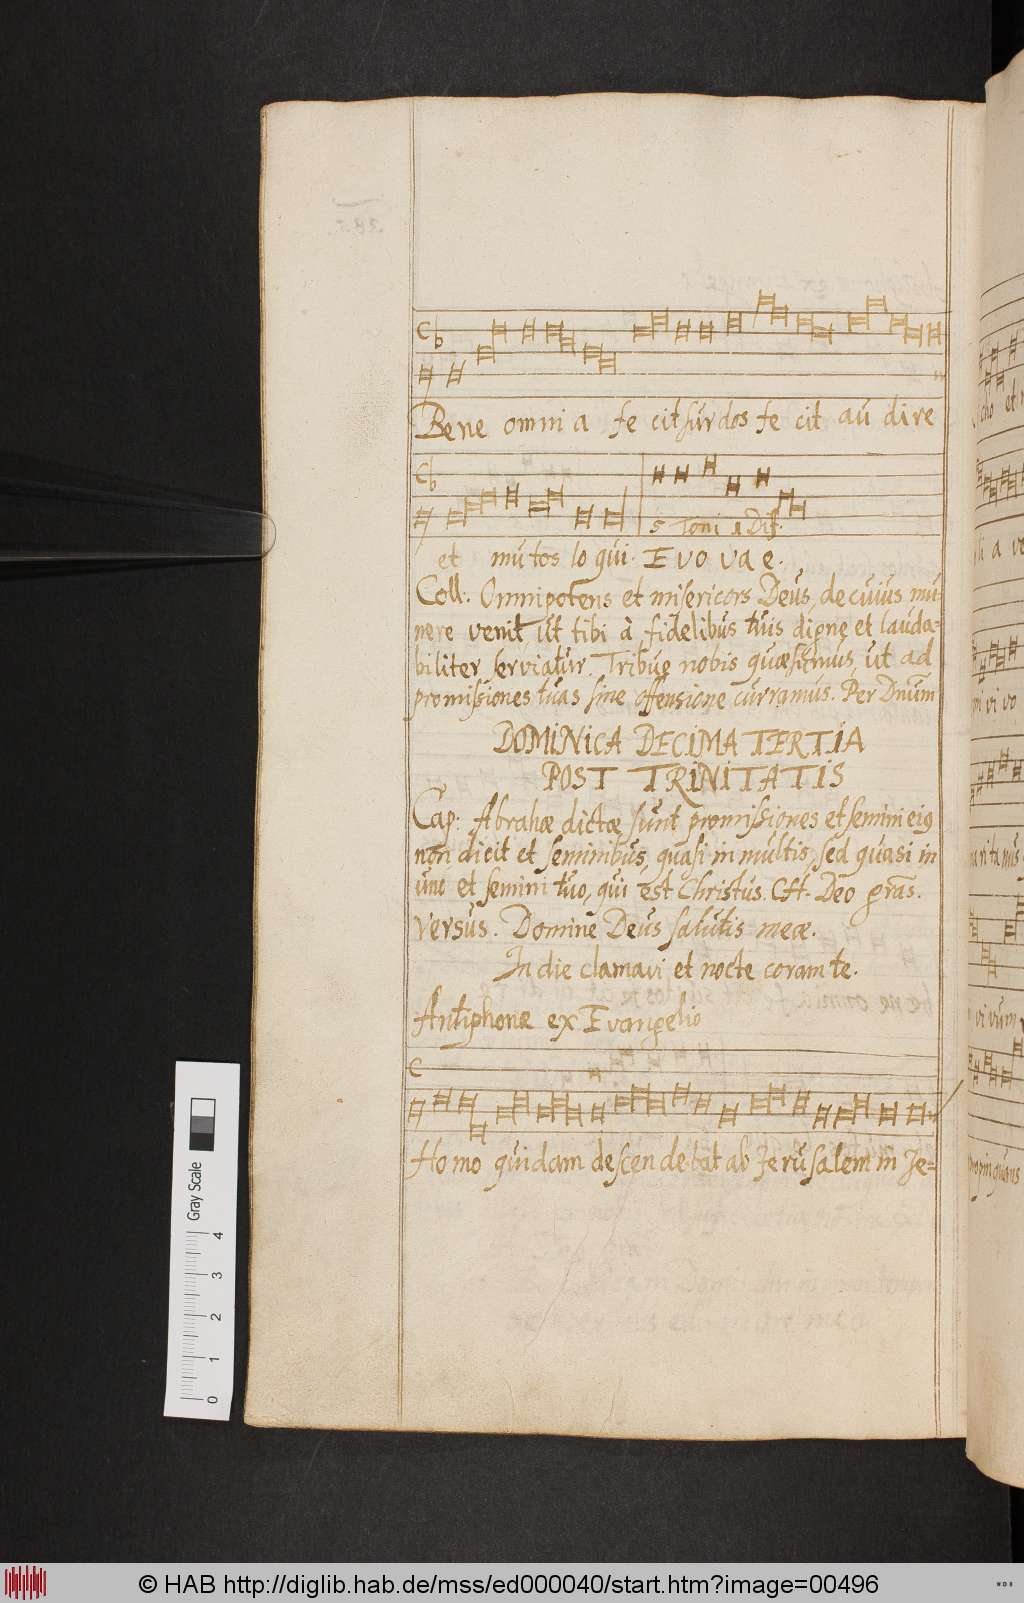 Bene omni a fe cit surdos fe cit au dire
5 Toni 1 Dif.
et mutos lo qui. E vo va e.
Coll. Omnipotens et misericors Deus, de cuius mu-
nere venit, ut tibi à fidelibus tuis digne et lauda-
biliter serviatur. Tribue nobis quæsumus, ut ad
promissiones tuas sine offensione curramus. Per Dnum
DOMINICA DECIMA TERTIA
POST TRINITATIS
Cap: Abrahæ dictæ sunt promissiones et semini eius
non dicit et seminibus, quasi in multis, sed quasi in
uno et semini tuo, qui est Christus. Deo gras.
Versus. Domine Deus salutis meæ.
In die clamavi et nocte coram te.
Antiphonæ ex Evangelio
Homo quidam descendebat ab Jerusalem in Je-
Gray Scale
0 1 2 3 4
© HAB http://diglib.hab.de/mss/ed000040/start.htm?image=00496